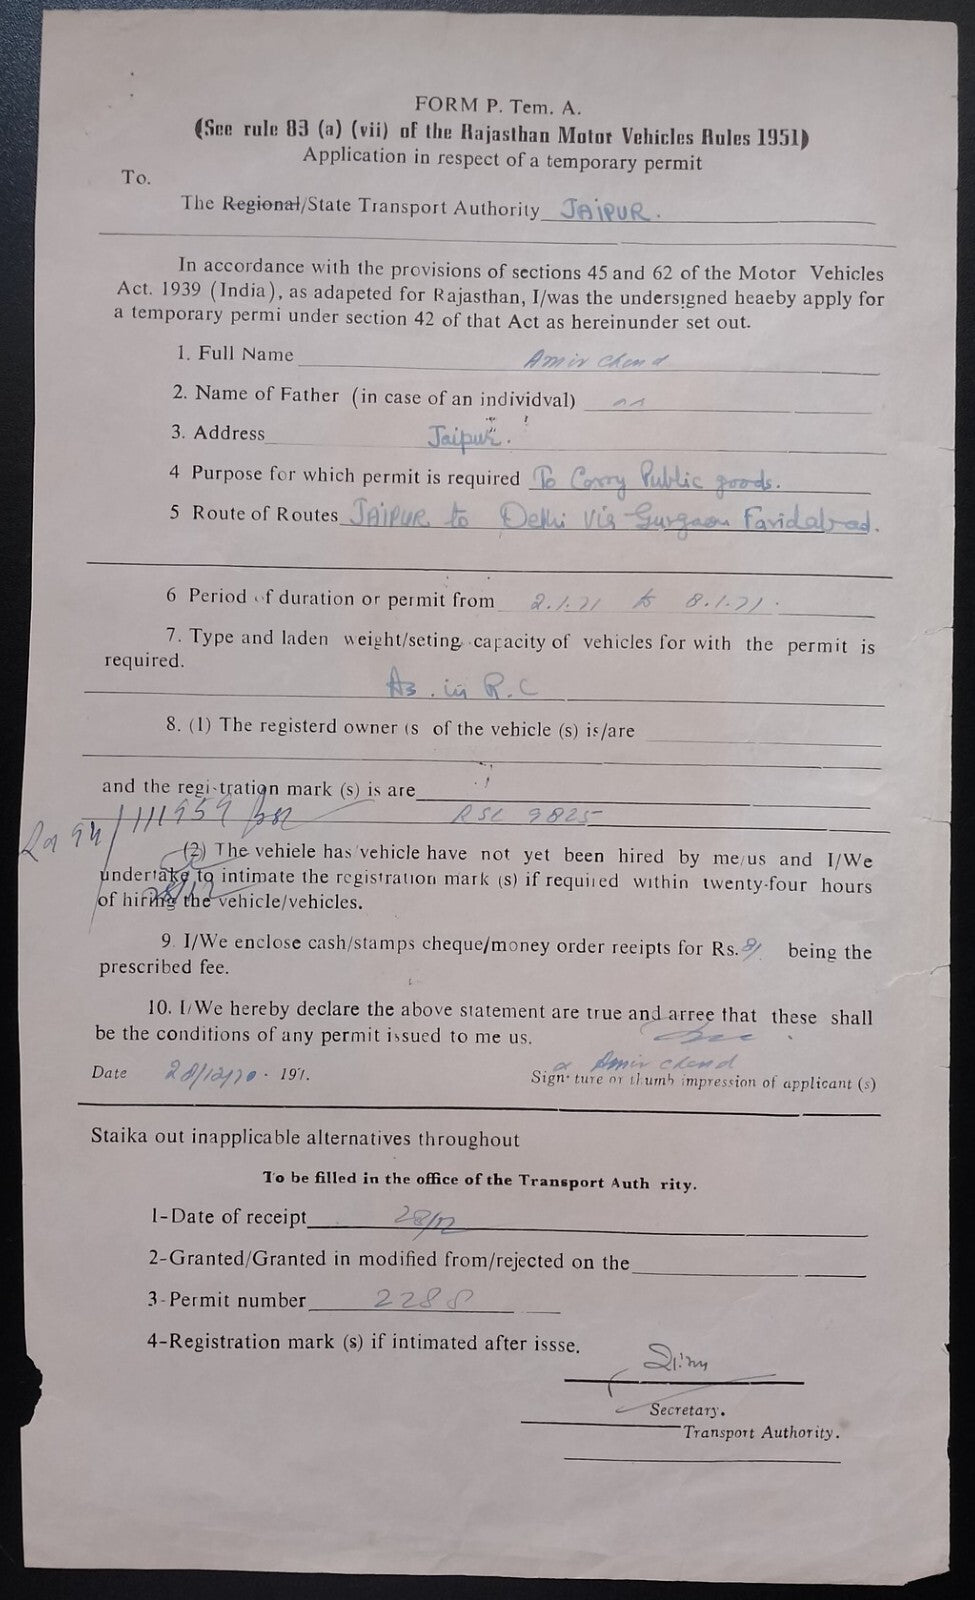 FORM P. Tem. A.
(See rule 83 (a) (vii) of the Rajasthan Motor Vehicles Rules 1951)
Application in respect of a temporary permit
To.
The Regional/State Transport Authority JAIPUR.
In accordance with the provisions of sections 45 and 62 of the Motor Vehicles
Act. 1939 (India), as adapeted for Rajasthan, I/was the undersigned heaeby apply for
a temporary permi under section 42 of that Act as hereinunder set out.
1. Full Name Amir Chand
2. Name of Father (in case of an individval)
3. Address Jaipur.
4 Purpose for which permit is required To Carry Public goods.
5 Route of Routes JAIPUR to Delhi Via Gurgaon Faridabad.
6 Period of duration or permit from 2.1.71 to 8.1.71.
7. Type and laden weight/seting capacity of vehicles for with the permit is
required.
As. in R.C
8. (1) The registerd owner (s of the vehicle (s) is/are
and the registration mark (s) is are
111959 RSL 9825
(2) The vehiele has/vehicle have not yet been hired by me/us and I/We
undertake to intimate the registration mark (s) if required within twenty-four hours
of hiring the vehicle/vehicles.
28/12
9. I/We enclose cash/stamps cheque/money order receipts for Rs. 8/ being the
prescribed fee.
10. I/We hereby declare the above statement are true and arree that these shall
be the conditions of any permit issued to me us.
Amir Chand
Date 28/12/70. 197.
Signature or thumb impression of applicant (s)
Staika out inapplicable alternatives throughout
To be filled in the office of the Transport Auth rity.
1-Date of receipt 28/12
2-Granted/Granted in modified from/rejected on the
3-Permit number 2288
4-Registration mark (s) if intimated after issse.
Secretary.
Transport Authority.